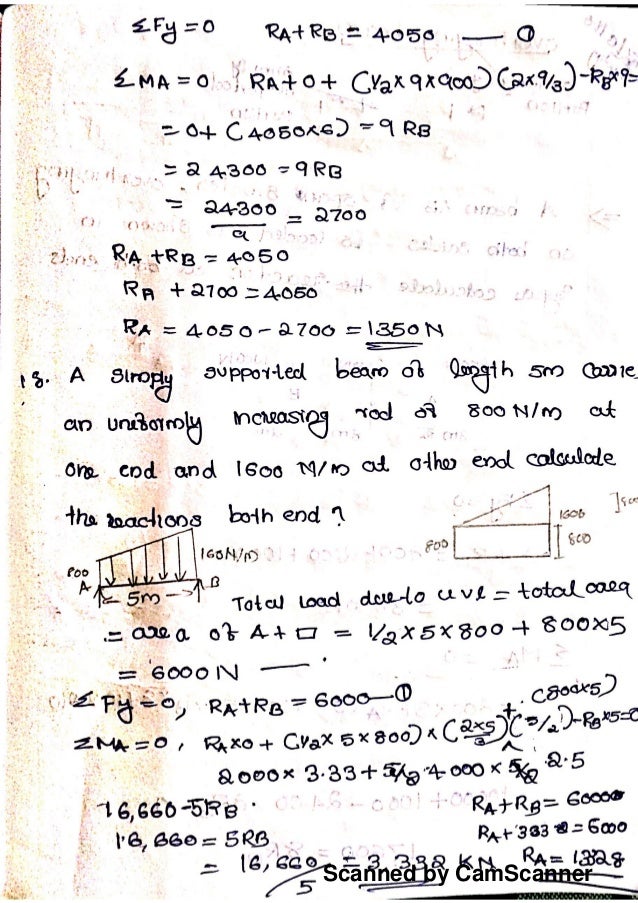 ΣFy = 0 RA + RB = 4050 — ①
ΣMA = 0 RA + 0 + (1/2 × 9 × 900) (2×9/3) - RB×9=
= 0 + (4050×6) = 9 RB
= 24300 = 9RB
= 24300/9 = 2700
RA + RB = 4050
RA + 2700 = 4050
RA = 4050 - 2700 = 1350 N
18. A simply supported beam of length 5m carrie
an uniformly increasing rod of 800 N/m at
one end and 1600 N/m at other end calculate
the reactions both end ?
1600
800
800
800
160N/m
A
B
5m
Total load due to uvl = total
= area of Δ + □ = 1/2 × 5 × 800 + 800×5
= 6000 N
ΣFy = 0, RA + RB = 6000 — ①
ΣMA = 0, RA×0 + (1/2 × 5 × 800) × (2×5/3) + (800×5) (5/2) - RB×5=0
2000 × 3.33 + 4000 × 2.5
16,660 - 5RB
16,660 = 5RB
= 16,660/5 = 3,332 KN
RA + RB = 6000
RA + 333 = 6000
RA = 1328
Scanned by CamScanner